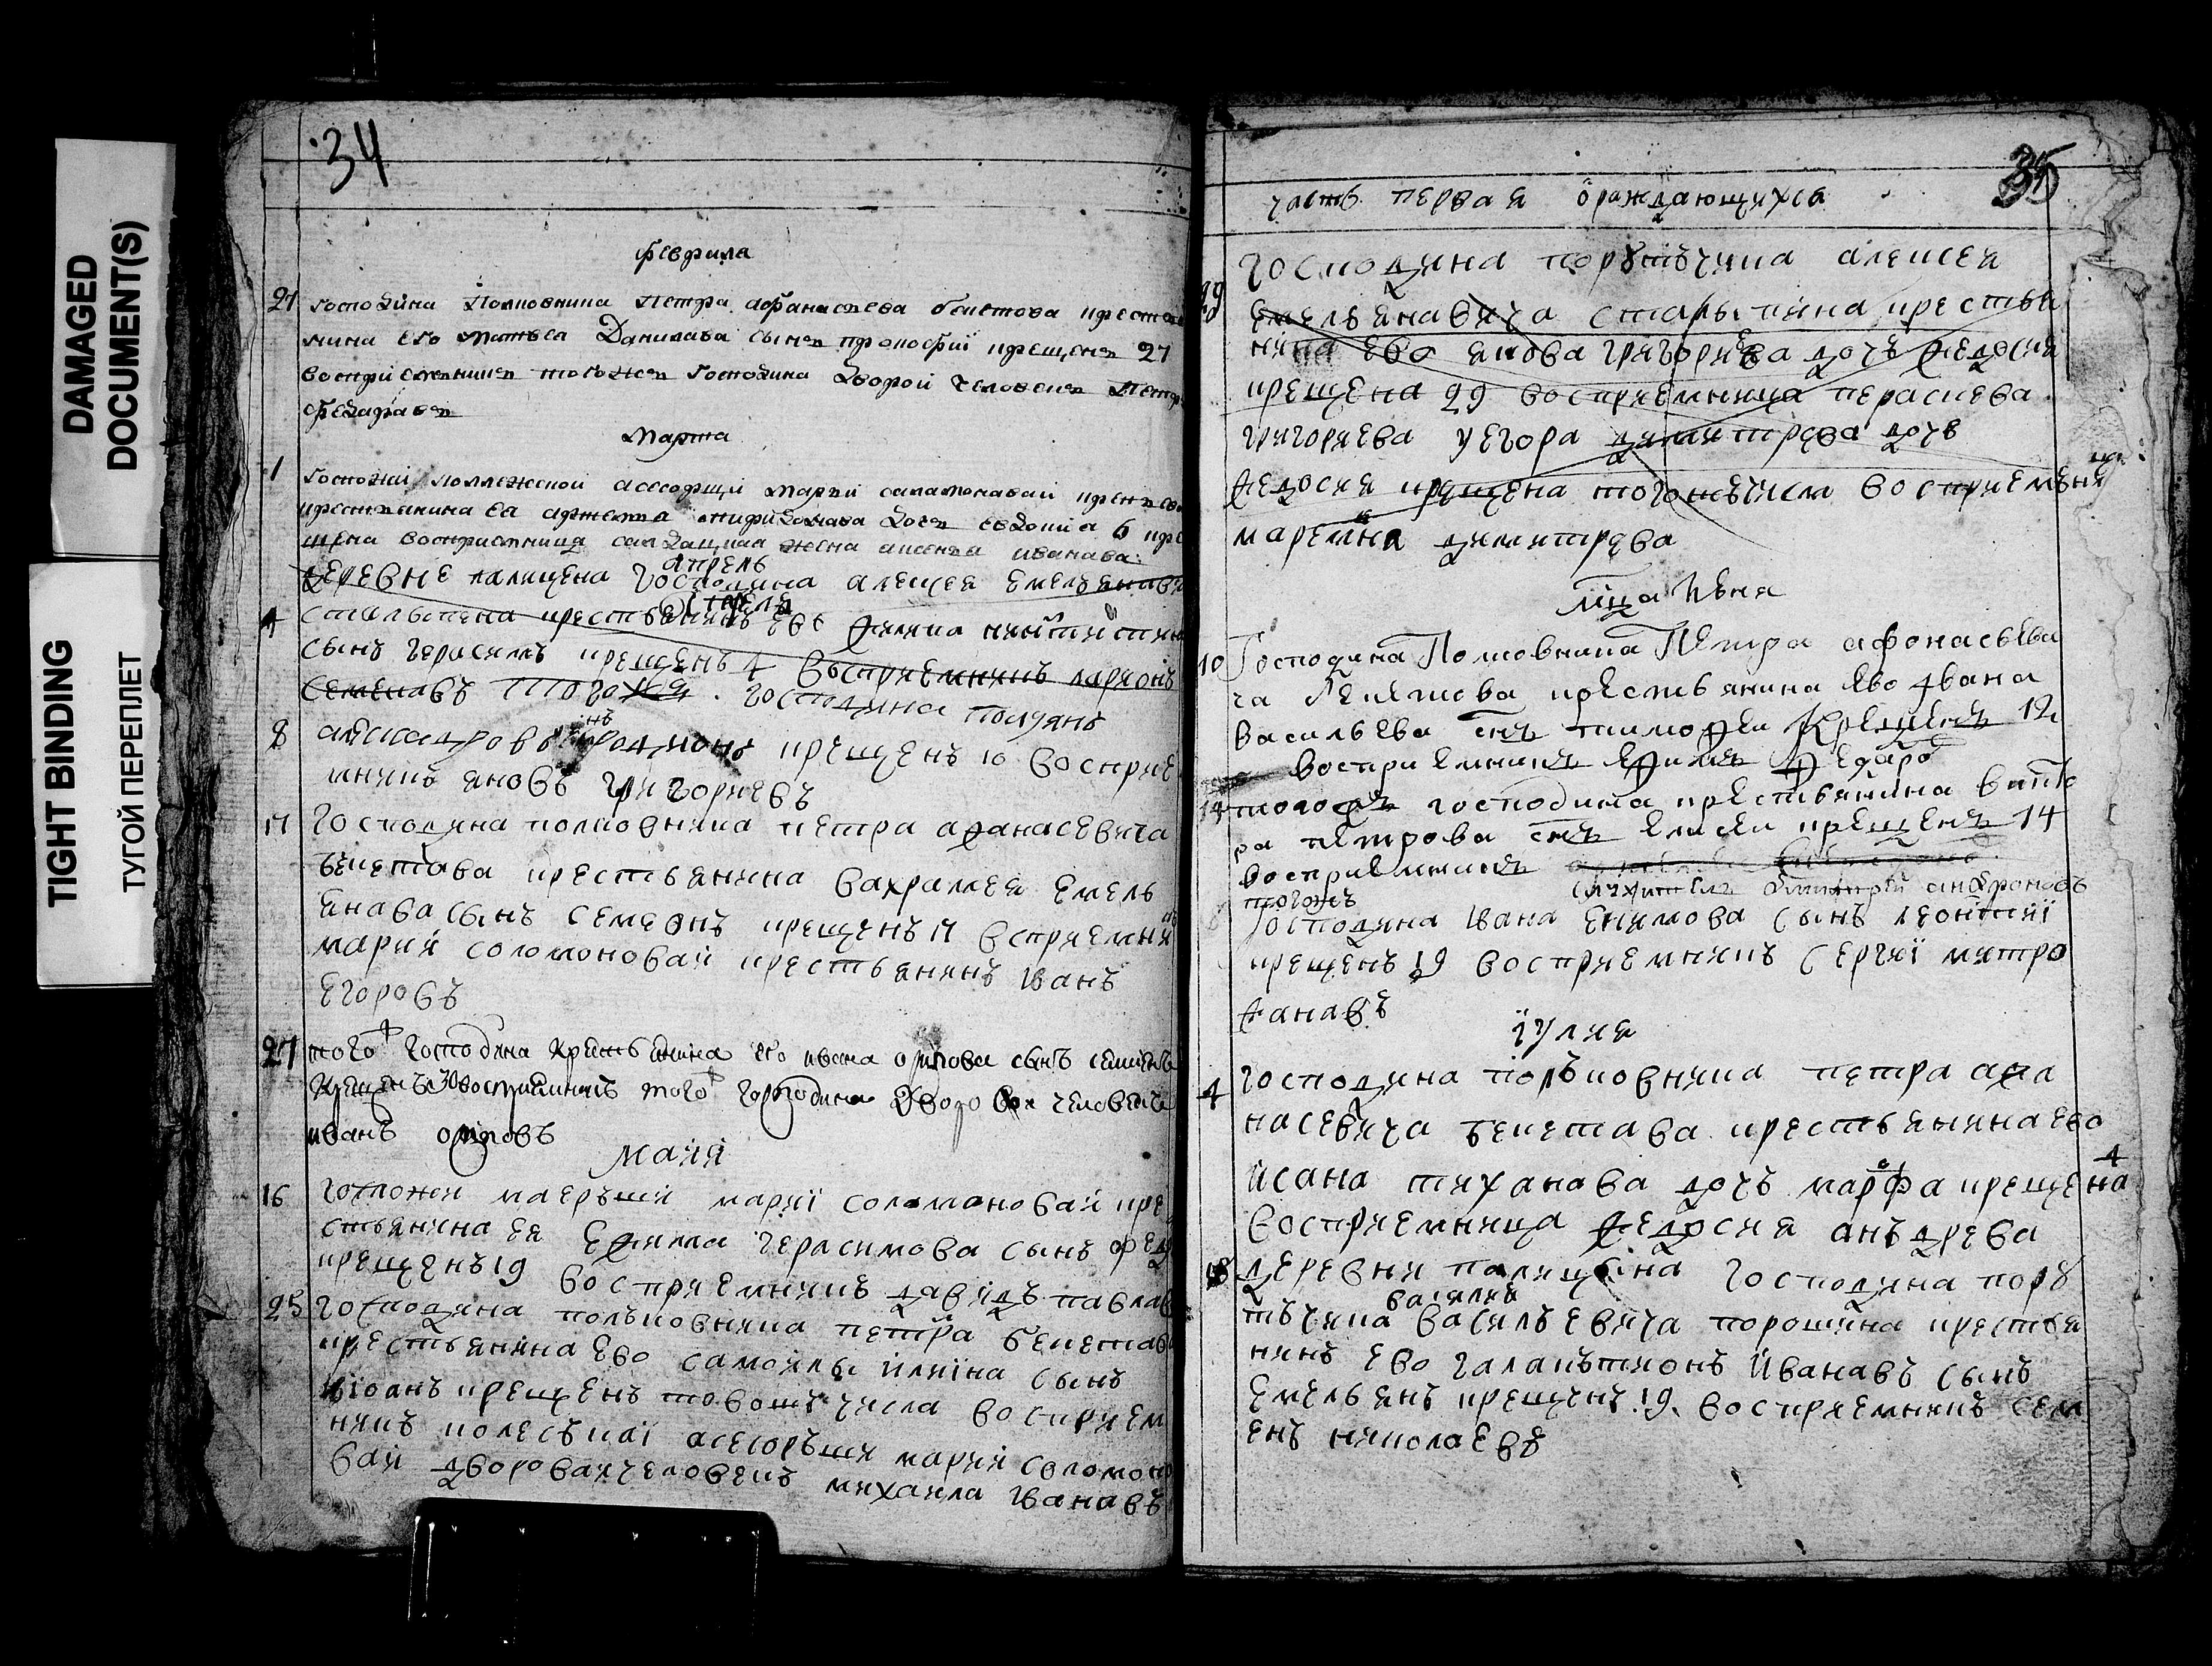 DAMAGED
DOCUMENT(S)
TIGHT BINDING
ТУГОЙ ПЕРЕПЛЕТ
34
февраля
21 господина Полковника Петра Афанасьева бекетова крестья
нина его Матвея Данилава сынъ прокофїй крещенъ 27
воспрїемникъ тогожъ господина дворой человекъ Петръ
феодаравъ
Марта
1 госпожи коллежской асесорщи Марьи саламонавай
крестьянина ея дочь евдокиа 6 кре
щена восприемница салдацкая жена аксенья иванава
апрель
деревне палицена господина алексея емельянавича
сталыпена крестьянинъ ево филипа никитина
4 сынъ герасимъ крещенъ 4 воспряемникъ ларионъ
семенавъ тогожъ господина
8 родионъ крещенъ 10 восприе
мникъ яковъ григорьевъ
17 господина полковника петра афанасевича
бекетава крестьянина вахрамея емель
янава сынъ семенъ крещенъ 17 вспряемникъ
марии соломоновай крестьянинъ Iванъ
егоровъ
27 того господина крестьянина его ивана осипова сынъ
крещенъ 30 восприемникъ того господина дворовая человекъ
иванъ осиповъ
Майя
16 госпожи маеръши марїї соломановай кре
стьянина ея ефима герасимова сынъ
крещенъ 19 воспряемникъ давидъ павлавъ
25 господина полъковника петра бекетава
крестьянина ево самойлы илкина сынъ
iоанъ крещенъ товошъ числа воспряем
никъ колесъкаї асесоръши марии соломоно
вай дворовая человекъ михаила Iванавъ
35
часть первая ораждающихся
29 господина порутъчика алексея
емельянавича сталыпина крестья
нина ево якова григорева дочь федосия
крещена 29 воспряемница параскева
григорьева у егора димитрева дочь
федосия крещена тогожъ числа воспряемъни
маремяна димитрева
мца Июня
10 Господина Полковника Петра афонасьеви
ча бекетова крестьянина ево Ивана
васильева снъ тимофеи крещенъ 12
восприемникъ ефимъ федаро
14 тогожъ господина крестьянина викто
ра петрова снъ елисеи крещенъ 14
восприемникъ
димитрїй андроновъ
тогожъ
господина Iвана екимова сынъ леонтиїї
крещенъ 19 воспряемникъ сергиї митро
фанавъ
їулия
4 господина полъковника петра афа
насевича бекетава крестьянина ево
исана тиханава дочъ марфа крещена 4
воспряемница федосия анъдрева
18 деревни палицына господина пору
тъчика василия васильевича порошина крестья
нинъ ево галакътионъ Иванавъ сынъ
емельянъ крещенъ 19 воспряемникъ сем
енъ николаевъ